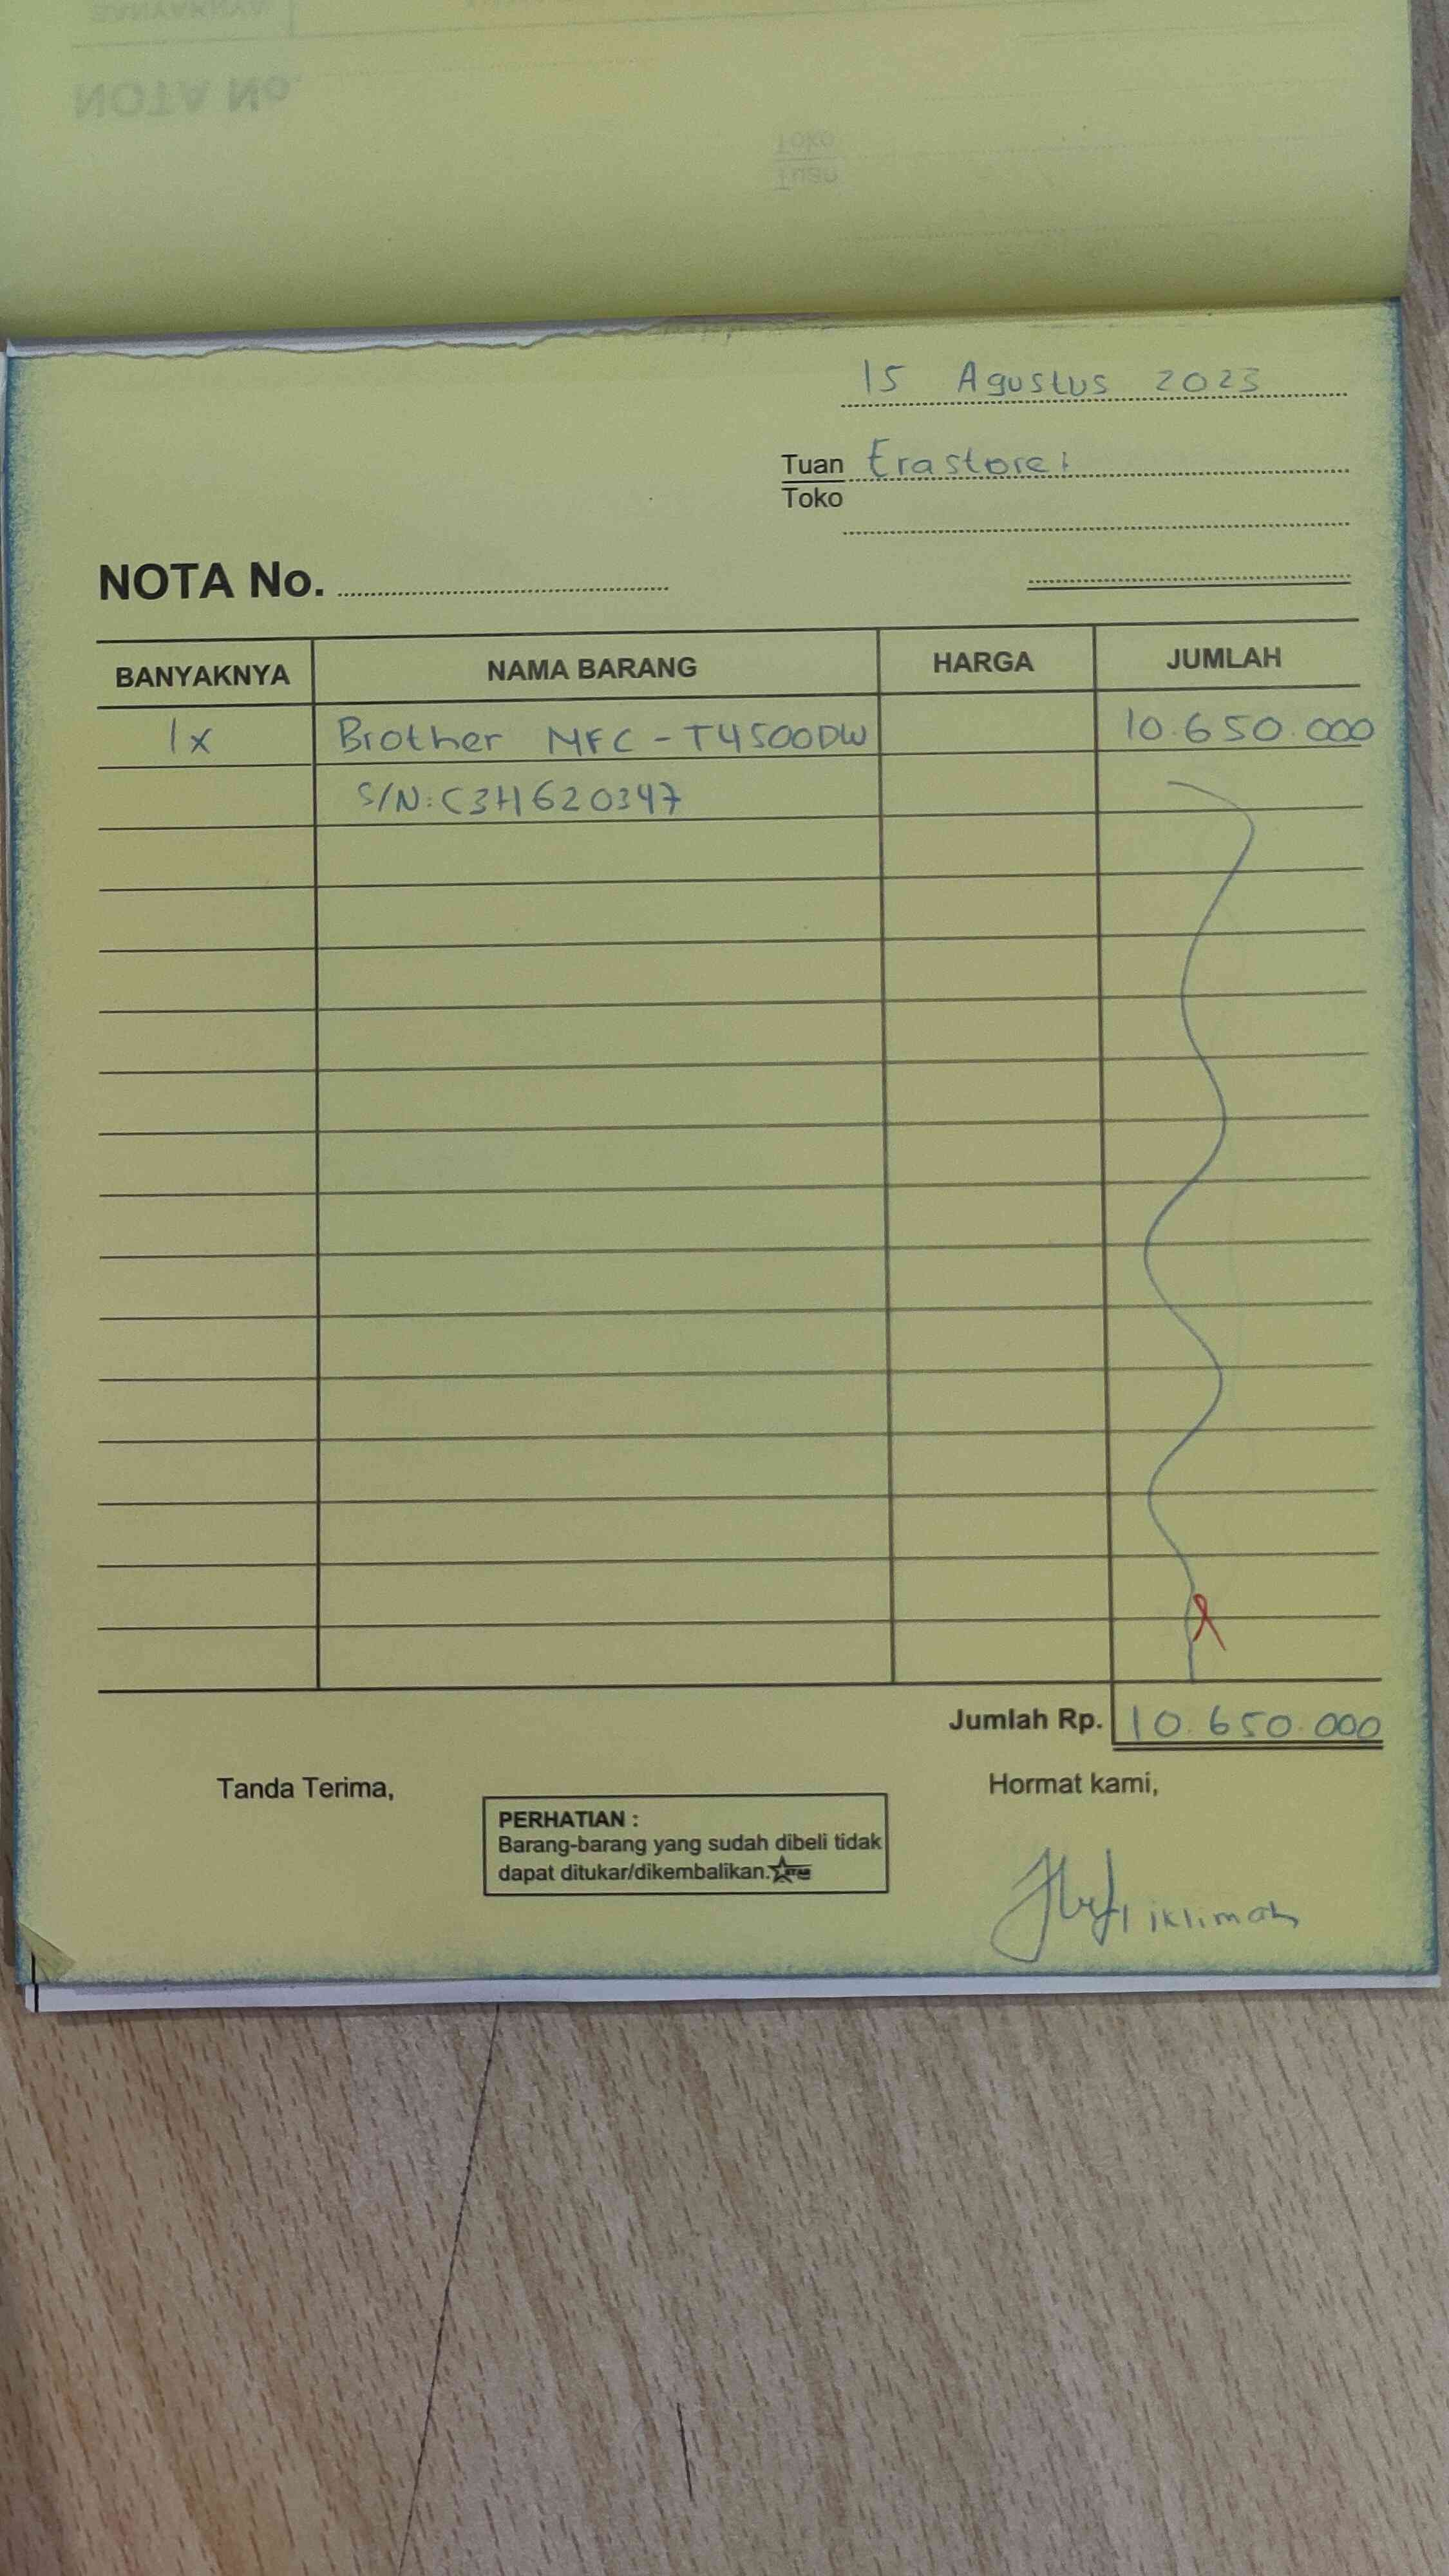 15 Agustus 2023
Tuan Erastore
Toko
NOTA No.
BANYAKNYA NAMA BARANG HARGA JUMLAH
1x Brother MFC-T4500DW 10.650.000
S/N: C3H620347
Jumlah Rp. 10.650.000
Tanda Terima,
Hormat kami,
PERHATIAN :
Barang-barang yang sudah dibeli tidak
dapat ditukar/dikembalikan.
iklimah